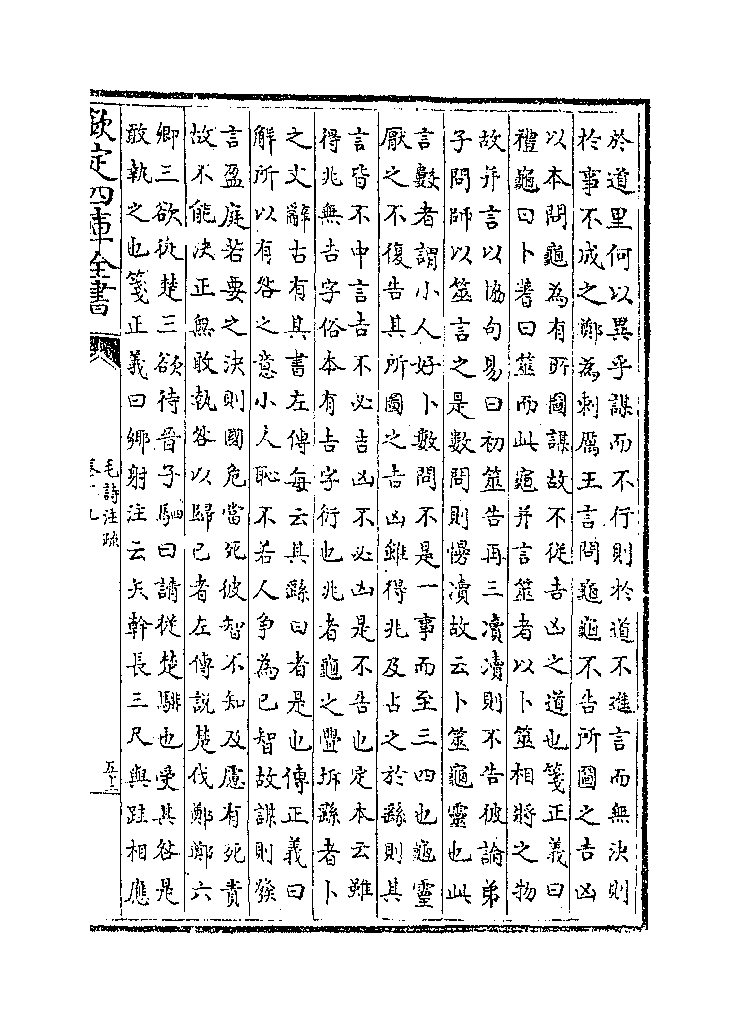 於道里何以異乎謀而不行則於道不進言而無決則
於事不成之鄭為刺厲王言問龜龜不告所圖之吉凶
以本問龜為有所圖謀故不從吉凶之道也箋正義曰
禮龜曰卜蓍曰筮而此龜并言筮者以卜筮相將之物
故并言以協句易曰初筮告再三瀆瀆則不告彼論弟
子問師以筮言之是數問則慢瀆故云卜筮龜靈也此
言數者謂小人好卜數問不是一事而至三四也龜靈
厭之不復告其所圖之吉凶雖得兆及占之於繇則其
言皆不中言吉不必吉凶不必凶是不告也定本云雖
得兆無吉字俗本有吉字衍也兆者龜之舋坼繇者卜
之文辭古有其書左傳每云其繇曰者是也傳正義曰
解所以有咎之意小人恥不若人爭為己智故謀則發
言盈庭若要之決則國危當死彼智不知及慮有死責
故不能決正無敢執咎以歸己者左傳說楚伐鄭鄭六
卿三欲從楚三欲待晉子駟曰請從楚騑也受其咎是
敢執之也箋正義曰鄉射注云矢幹長三尺與跬相應
欽定四庫全書
毛詩注疏
五十二